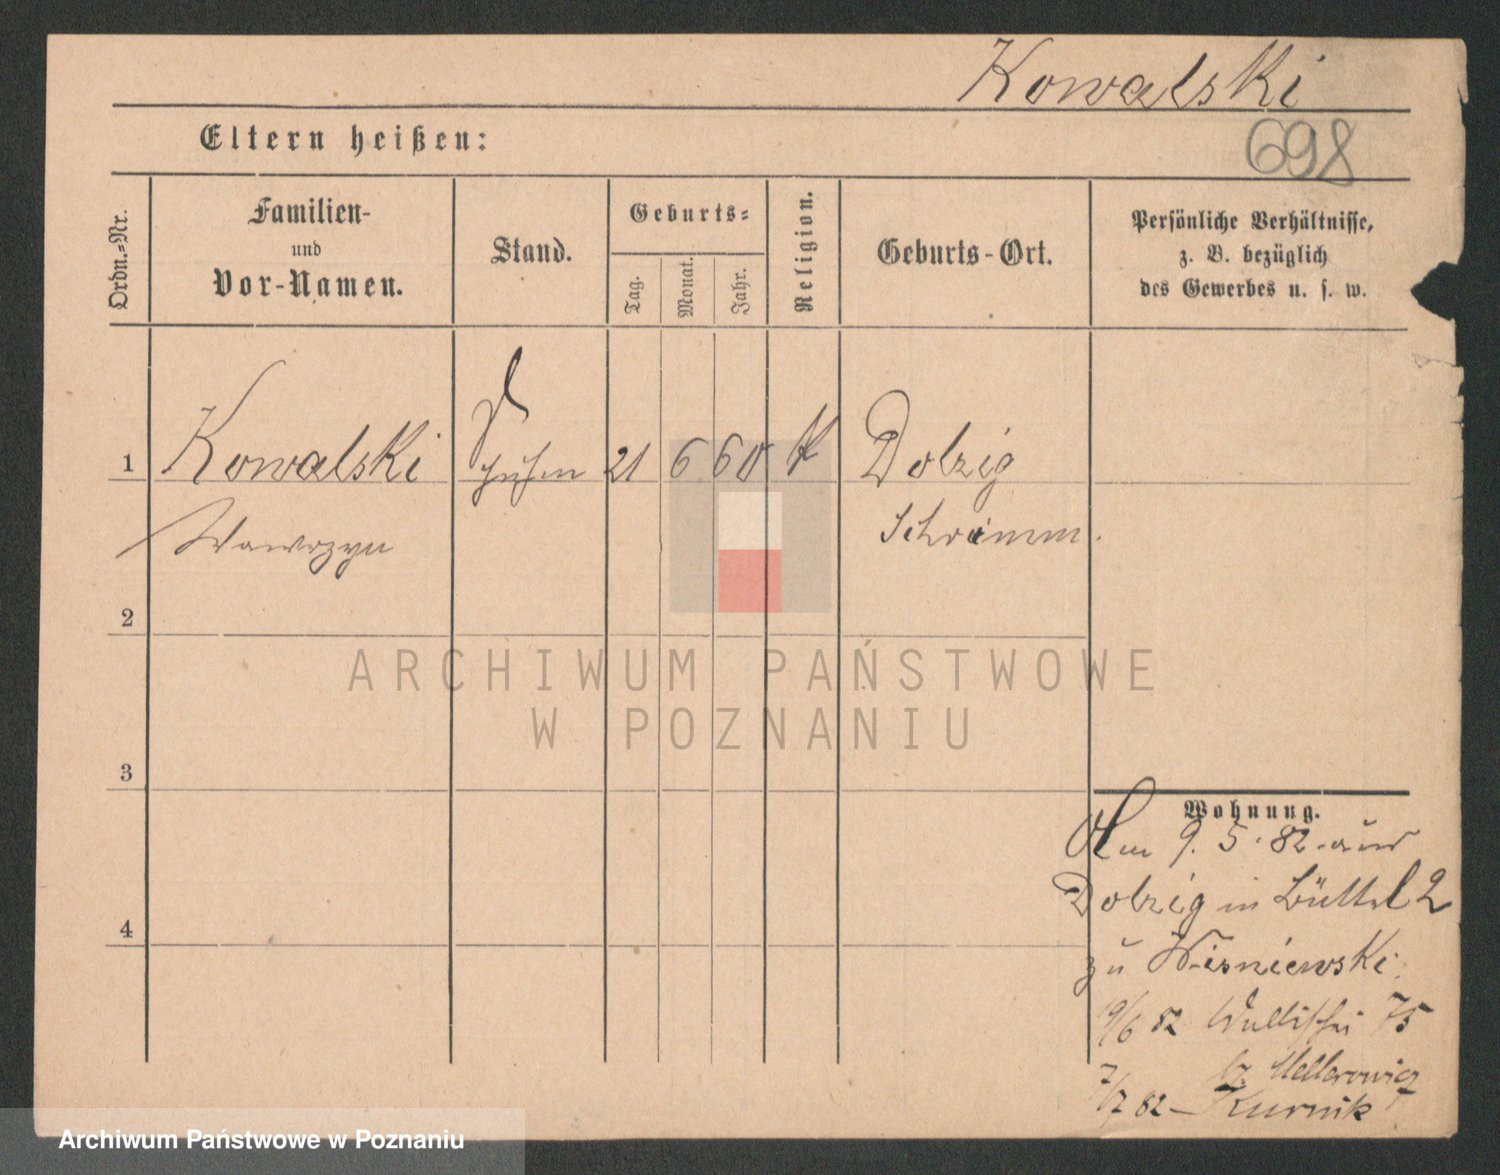 Kowalski
698
Eltern heißen:
Ordn.-Nr.
Familien-
und
Vor-Namen.
Stand.
Geburts-
Tag.
Monat.
Jahr.
Religion.
Geburts-Ort.
Persönliche Verhältnisse,
z. B. bezüglich
des Gewerbes u. s. w.
1 Kowalski 21 6 60 K Dolzig
Wawrzyn Schrimm.
2
ARCHIWUM PAŃSTWOWE
W POZNANIU
3
Wohnung.
Am 9.5.82 aus
Dolzig in Büttel 2
4
zu Wisniewski
19/6 82 Wallischei 75
bz. Mellerowicz
7/7 82 – Kurnik
Archiwum Państwowe w Poznaniu